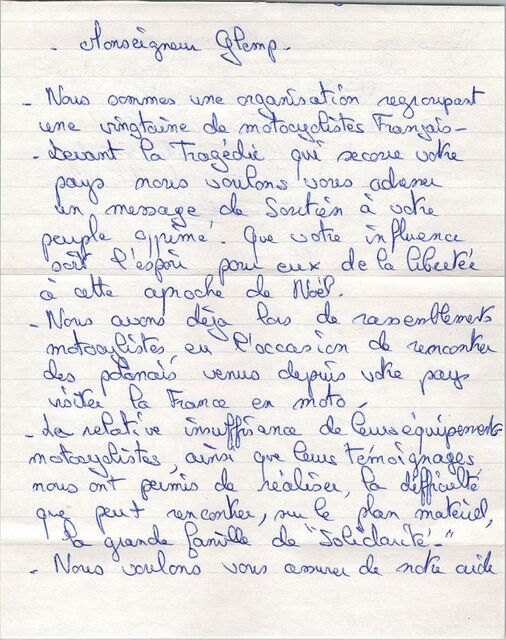 - Monseigneur Glemp -
- Nous sommes une organisation regroupant
une vingtaine de motocyclistes Français -
- Devant la Tragédie qui secoue votre
pays nous voulons vous adresser
un message de Soutien à votre
peuple opprimé. Que votre influence
soit l'espoir pour eux de la liberté
à cette aproche de Noël.
- Nous avons déja lors de rassemblements
motocyclistes, eu l'occasion de rencontrer
des polonais venus depuis votre pays
visiter la France en moto.
- La relative insuffisance de leurs équipements
motocyclistes, ainsi que leurs témoignages,
nous ont permis de réaliser, la difficulté
que peut rencontrer, sur le plan matériel,
la grande famille de "Solidarité -"
- Nous voulons vous assurer de notre aide